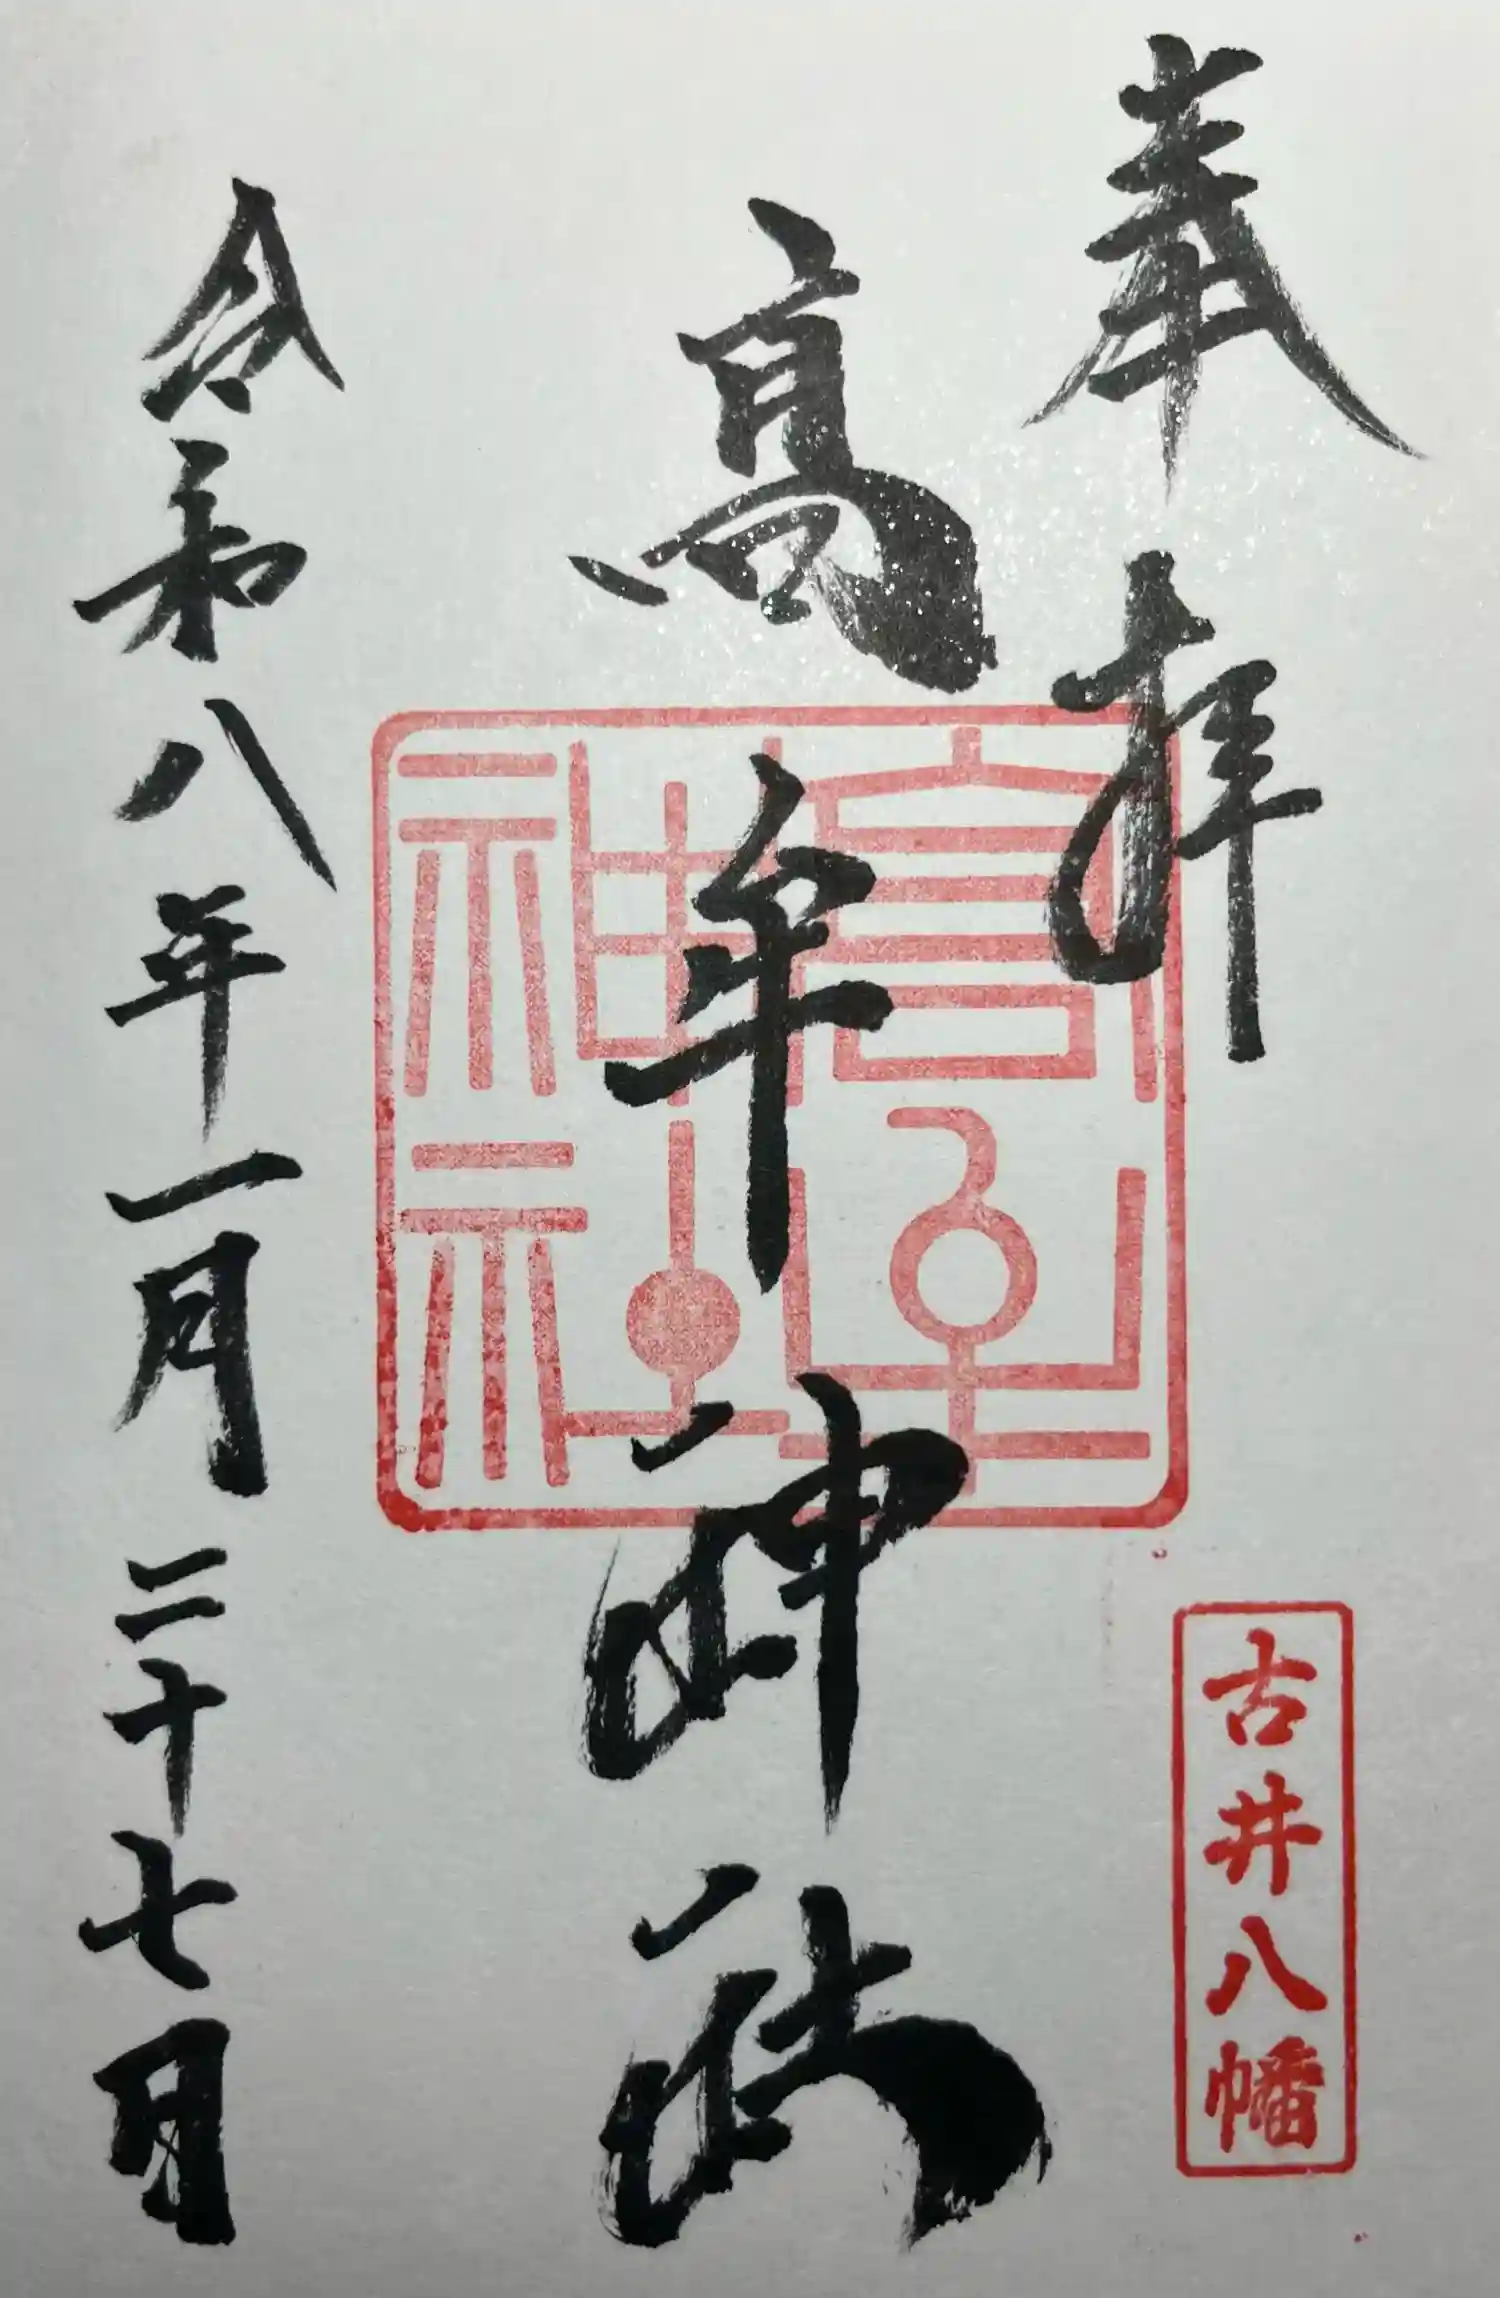 奉拝
古井八幡
高牟神社
高牟神社
令和八年一月二十七日